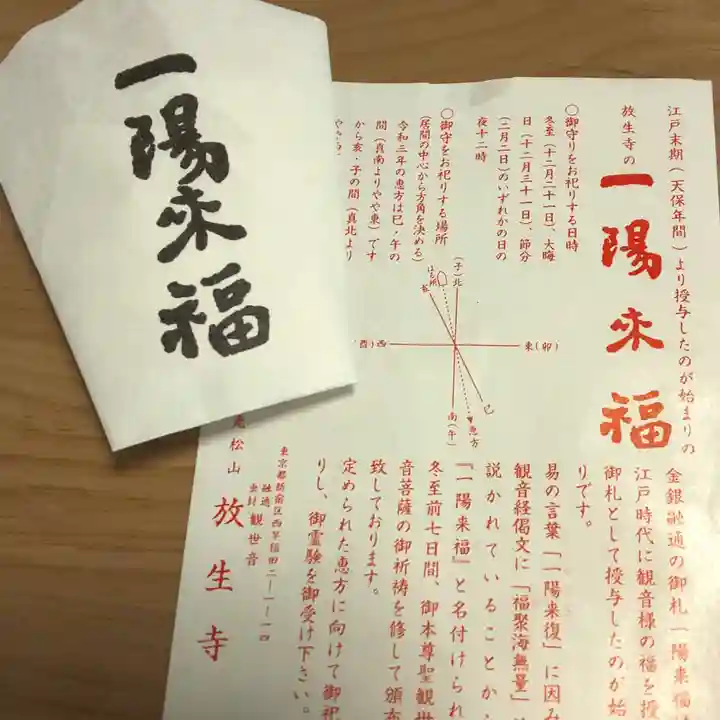 一陽来福
江戸末期（天保年間）より授与したのが始まりの
放生寺の
一陽来福
〇御守りをお祀りする日時
冬至（十二月二十一日）、大晦
日（十二月三十一日）、節分
（二月二日）のいずれかの日の
夜十二時
〇御守をお祀りする場所
（居間の中心から方角を決める）
令和三年の恵方は巳・午の
間（真南よりやや東）です
から亥・子の間（真北より
（子）北
はる所
亥
（酉）西
東（卯）
南（午）
巳
恵方
金銀融通の御札一陽来福
江戸時代に観音様の福を授
御札として授与したのが始
りです。
易の言葉「一陽来復」に因み
観音経偈文に「福聚海無量」
説かれていることから
『一陽来福』と名付けられ
冬至前七日間、御本尊聖観世
音菩薩の御祈祷を修して頒布
致しております。
定められた恵方に向けて御祀
りし、御霊験を御受け下さい。
東京都新宿区西早稲田二ー一ー一四
融通
虫封
観世音
松山
放生寺